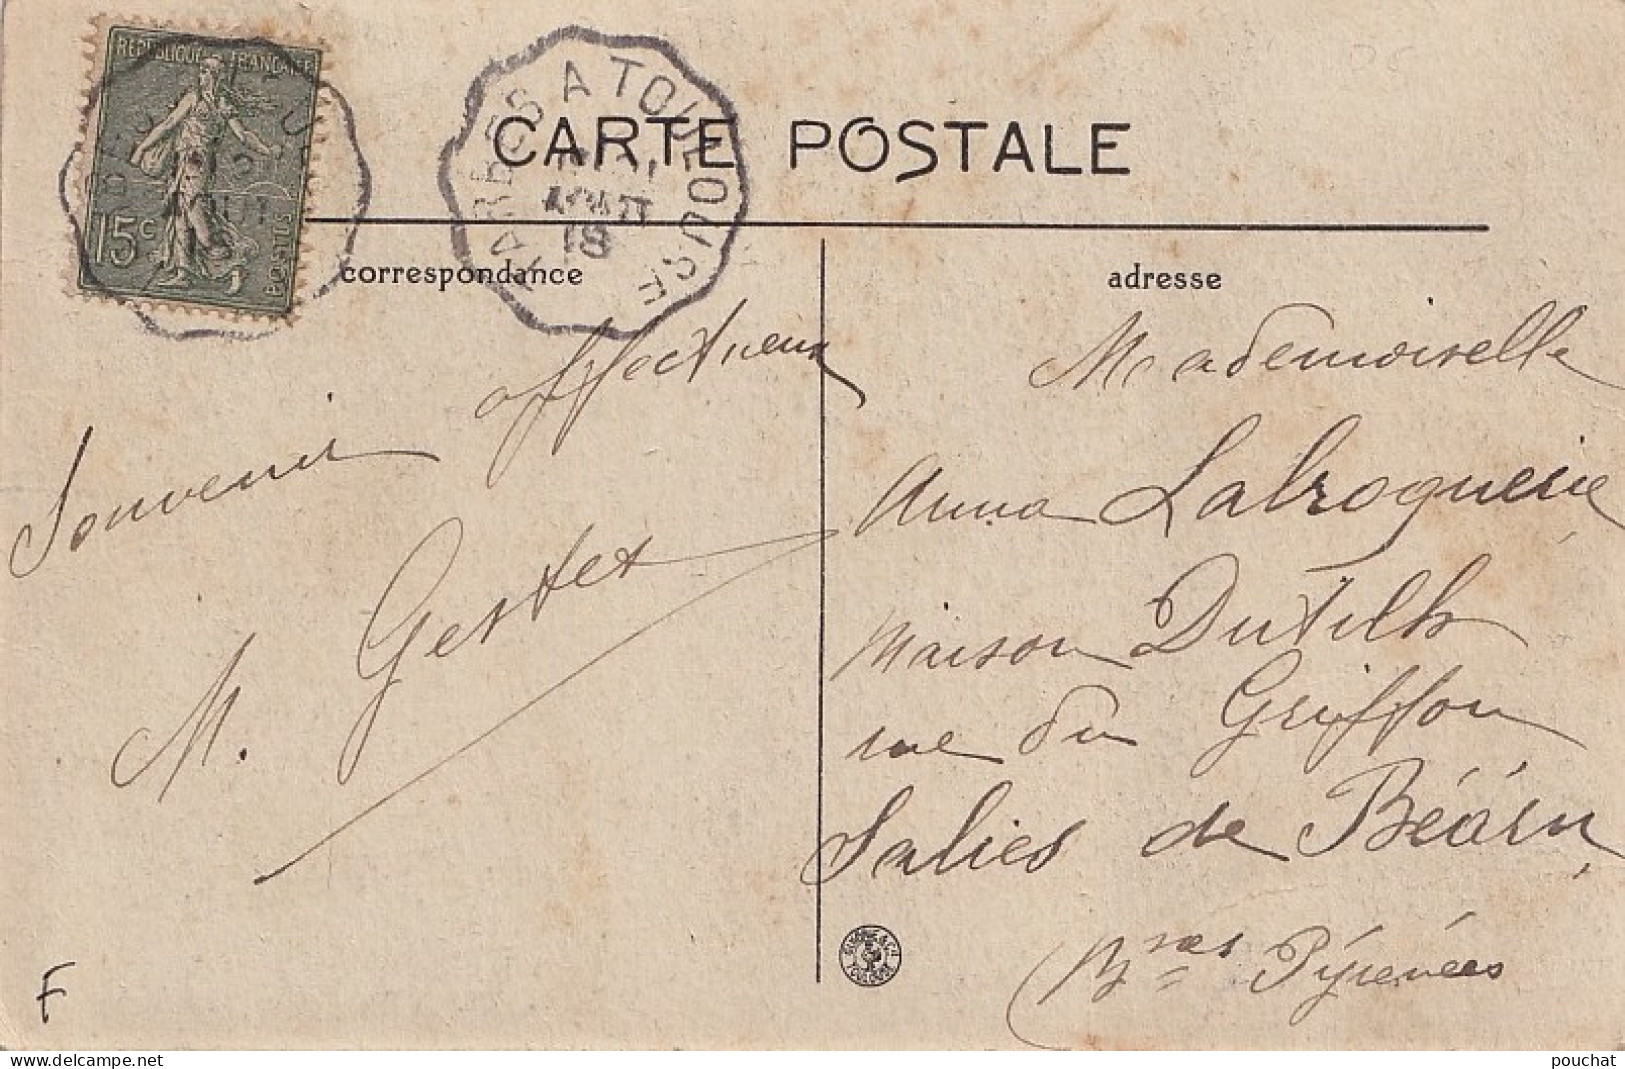 REPUBLIQUE FRANÇAISE
15c
POSTES
TARBES A TOULOUSE
AOUT
18
CARTE POSTALE
correspondance
Souvenir affectueux
M. Gestet
adresse
Mademoiselle
Anna Labroquère
Maison Dutilh
rue du Griffon
Salies de Béarn
(Bses Pyrénées
TOULOUSE
F
www.delcampe.net
pouchat